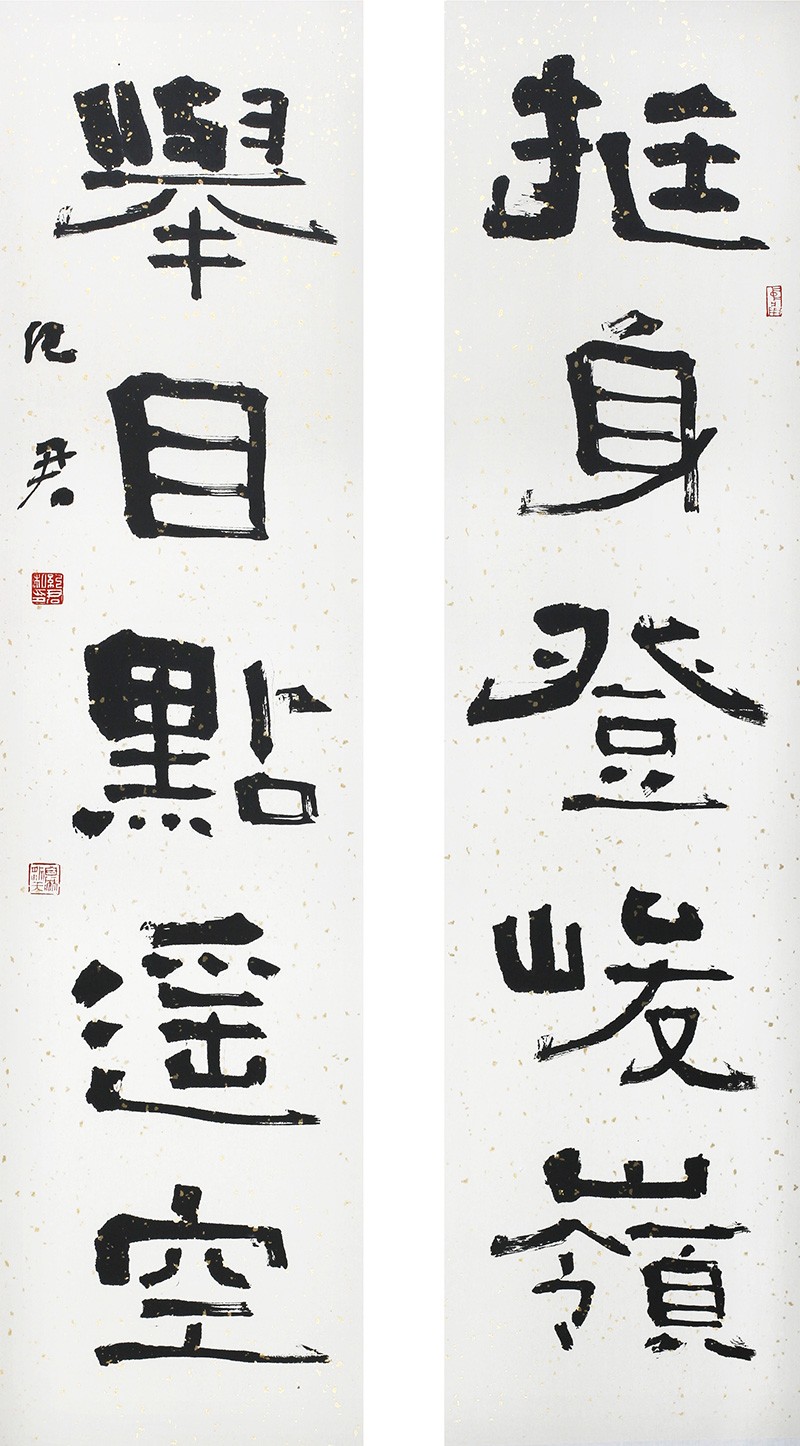 挺身登峻嶺
舉目點遥空
纪君